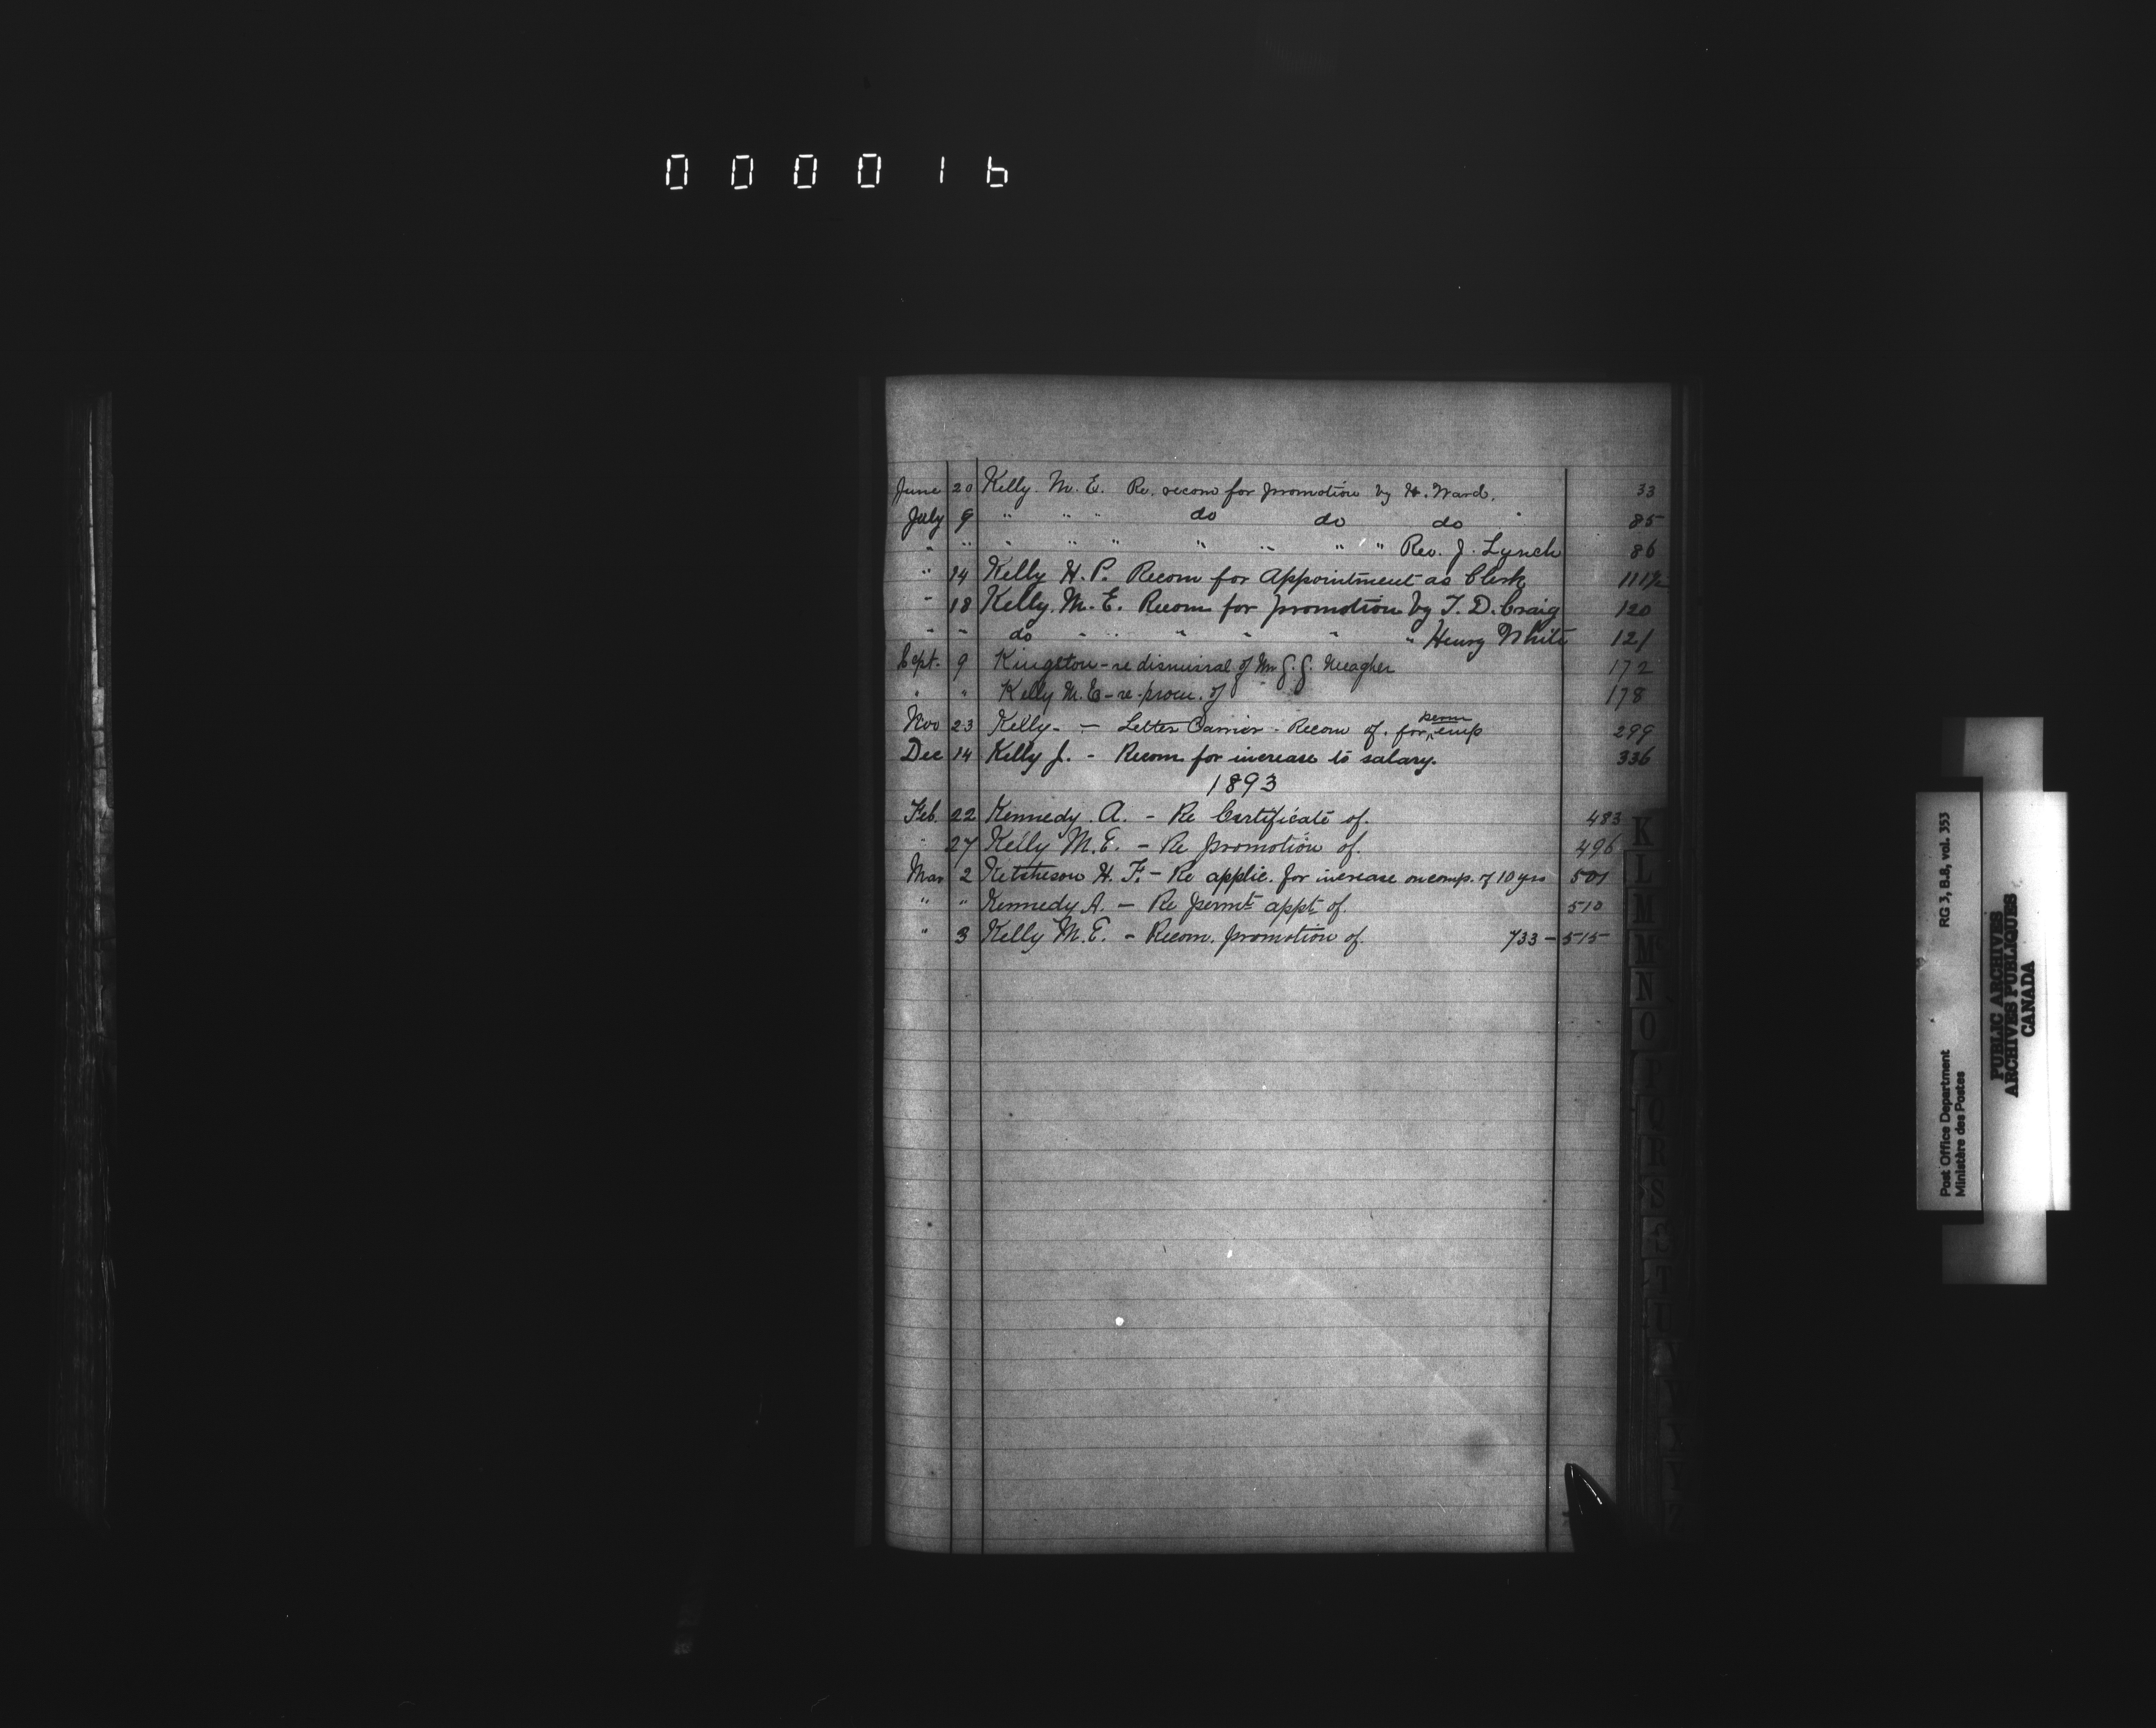 000016
June 20 Kelly. M. E. Re. recom for promotion by H. Ward. 33
July 9 " " " do do do " 85
" " " " " " " " " Rev. J. Lynch 86
" 14 Kelly H. P. Recom for Appointment as Clerk 111½
" 18 Kelly. M. E. Recom for promotion by T. D. Craig 120
" " do " " " " " " Henry White 121
Sept. 9 Kingston - re dismissal of Mr J. J. Meagher 172
" " Kelly M. E - re - prom. of 178
perm
Nov 23 Kelly - - Letter Carrier - Recom of. for ‸ emp 299
Dec 14 Kelly J. - Recom for increase to salary. 336
1893
Feb. 22 Kennedy. A. - Re Certificate of. 483
" 27 Kelly M. E. - Re promotion of. 496
Mar 2 Ketcheson H. F. - Re applic. for increase on comp. of 10 yrs 501
" " Kennedy A. - Re permt appt of. 510
" 3 Kelly M. E. - Recom. promotion of. 733 - 515
K
L
M
Mc
N
O
Q
R
S
T
U
RG 3, B.8, vol. 353
Post Office Department
Ministère des Postes
PUBLIC ARCHIVES
ARCHIVES PUBLIQUES
CANADA